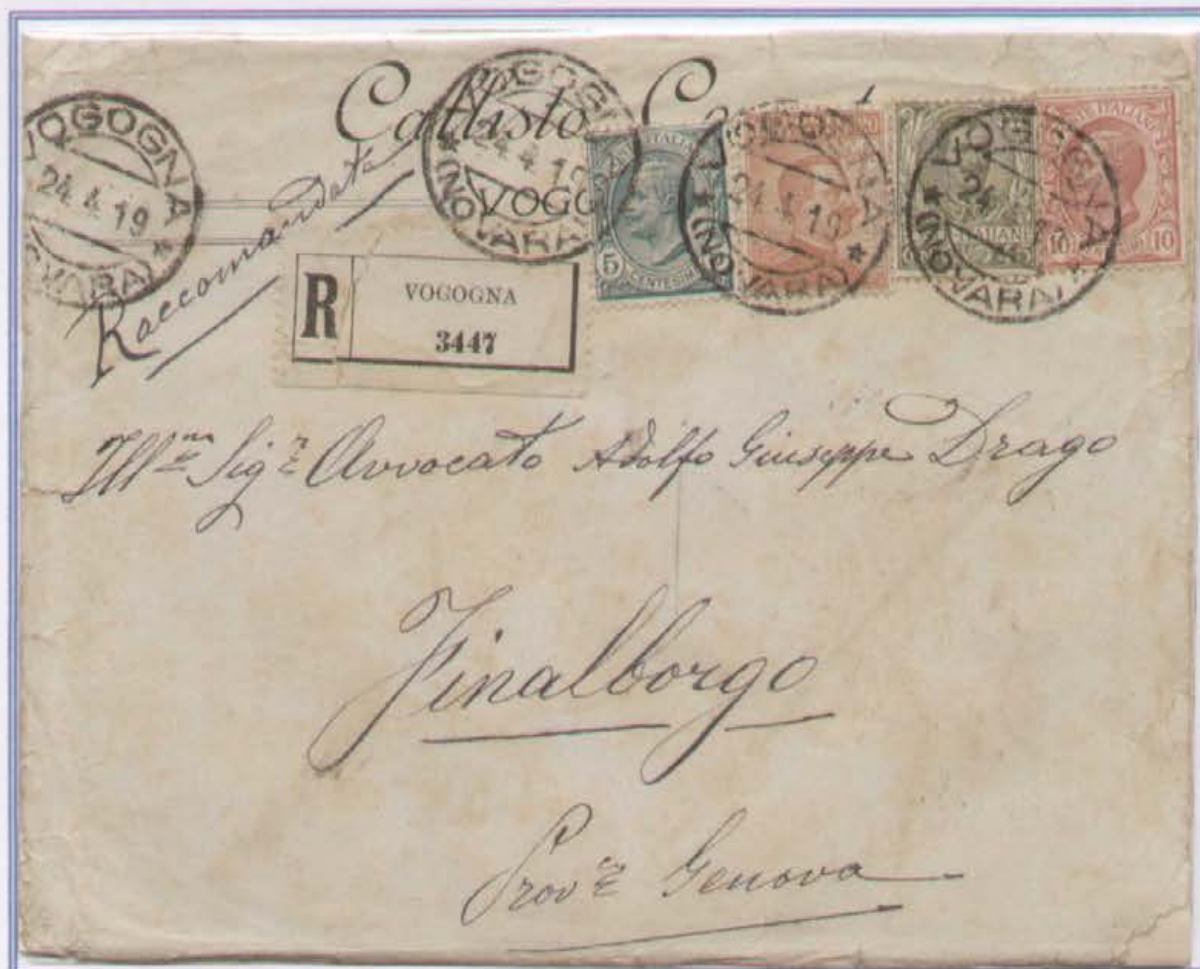 Callisto
VOGOGNA
24.4.19
(NOVARA)
VOGOGNA
24.4.19
(NOVARA)
VOGOGNA
24.4.19
(NOVARA)
VOGOGNA
24
(NOVARA)
VOGO
5
CENTESIMI
10 10
Raccomandata
R VOGOGNA
3447
Ill.mo Sig.r Avvocato Adolfo Giuseppe Drago
Finalborgo
Prov.a Genova